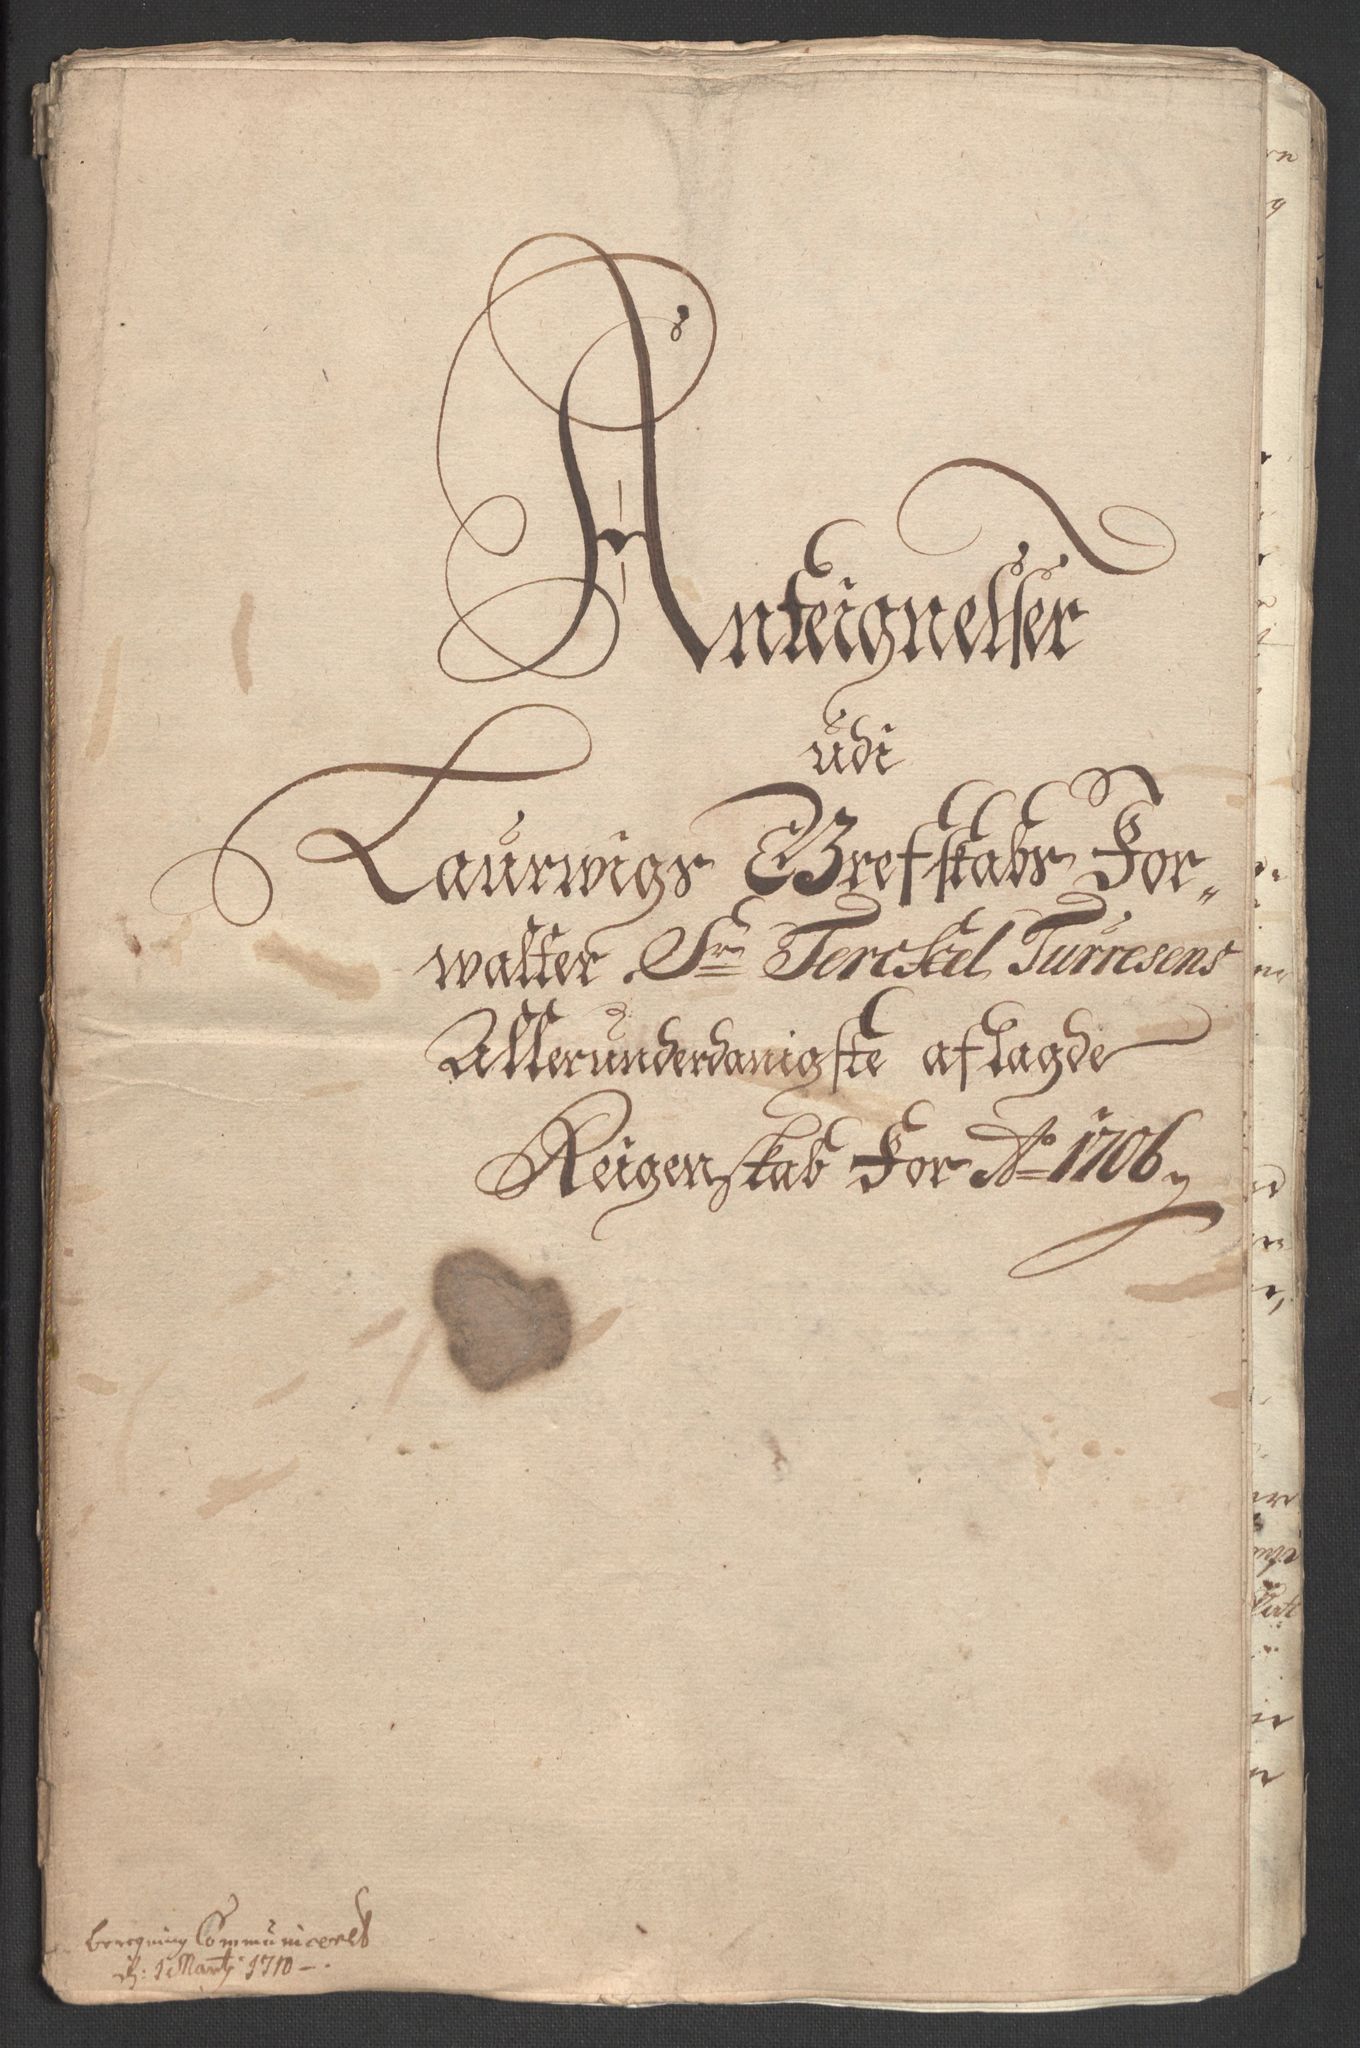 Anteignelser
udi
Laurwigs Grefskabs For-
walter Sr Terckel Turresens
Allerunderdanigste aflagde
Reigenskab For Ao 1706
beregning Communiceret
d: 1 Martj 1710